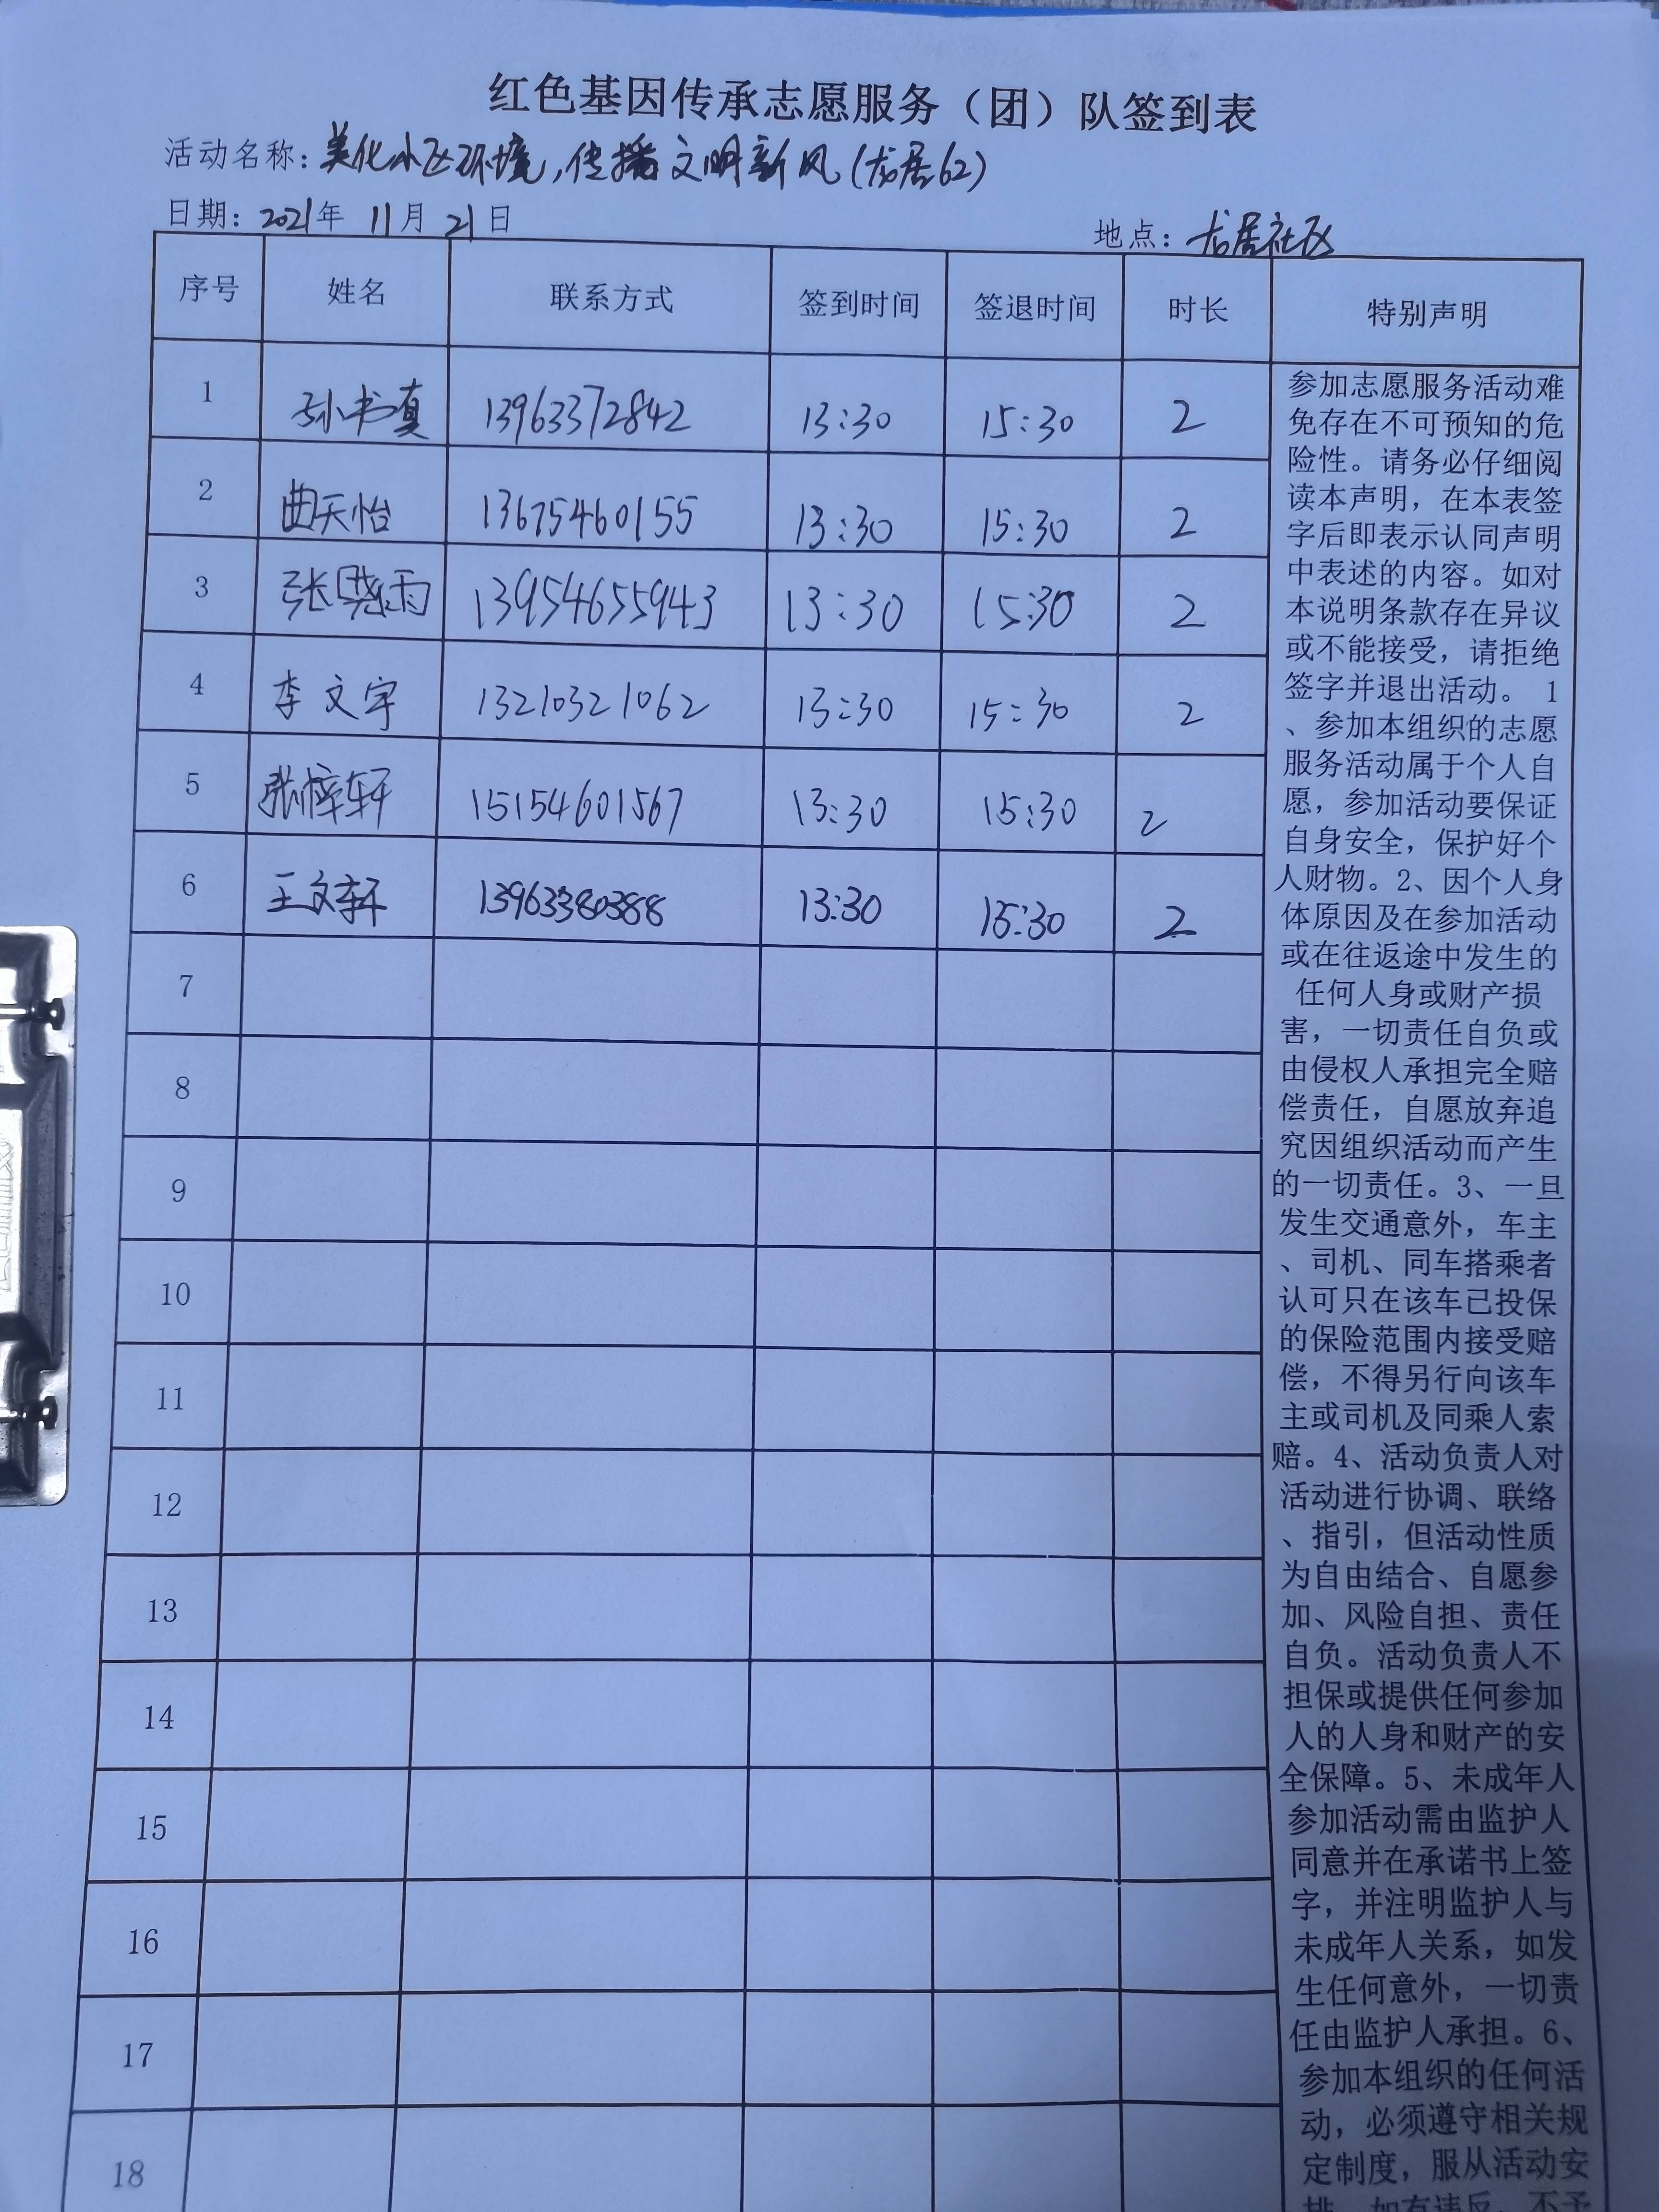 红色基因传承志愿服务（团）队签到表
活动名称：美化小区环境，传播文明新风（龙居62）
日期：2021年 11月 21日 地点：龙居社区
序号 姓名 联系方式 签到时间 签退时间 时长 特别声明
1 孙书真 13963372842 13:30 15:30 2
2 曲天怡 13675460155 13:30 15:30 2
3 张晓雨 13954655943 13:30 15:30 2
4 李文宇 13210321062 13:30 15:30 2
5 张梓轩 15154601567 13:30 15:30 2
6 王文轩 13963380388 13:30 15:30 2
7
8
9
10
11
12
13
14
15
16
17
18
参加志愿服务活动难
免存在不可预知的危
险性。请务必仔细阅
读本声明，在本表签
字后即表示认同声明
中表述的内容。如对
本说明条款存在异议
或不能接受，请拒绝
签字并退出活动。 1
、参加本组织的志愿
服务活动属于个人自
愿，参加活动要保证
自身安全，保护好个
人财物。2、因个人身
体原因及在参加活动
或在往返途中发生的
任何人身或财产损
害，一切责任自负或
由侵权人承担完全赔
偿责任，自愿放弃追
究因组织活动而产生
的一切责任。3、一旦
发生交通意外，车主
、司机、同车搭乘者
认可只在该车已投保
的保险范围内接受赔
偿，不得另行向该车
主或司机及同乘人索
赔。4、活动负责人对
活动进行协调、联络
、指引，但活动性质
为自由结合、自愿参
加、风险自担、责任
自负。活动负责人不
担保或提供任何参加
人的人身和财产的安
全保障。5、未成年人
参加活动需由监护人
同意并在承诺书上签
字，并注明监护人与
未成年人关系，如发
生任何意外，一切责
任由监护人承担。6、
参加本组织的任何活
动，必须遵守相关规
定制度，服从活动安
排，如有违反，不予